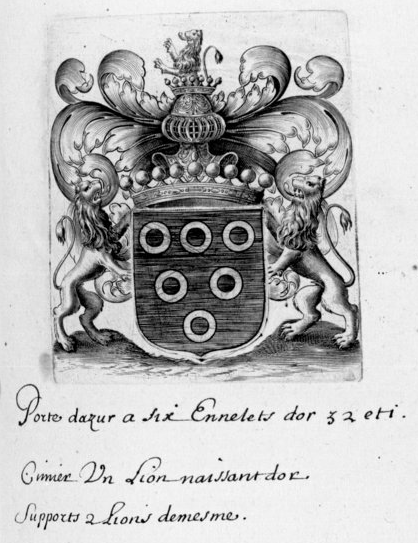 Porte dazur a six Ennelets dor 3 2 et i.
Cimier Un Lion naissant dor.
Supports 2 Lions demesme.